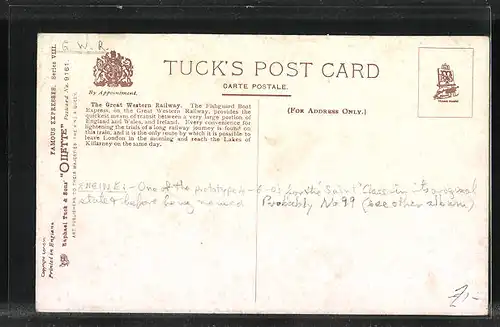 G.W.R.
By Appointment.
TUCK'S POST CARD
CARTE POSTALE.
(FOR ADDRESS ONLY.)
The Great Western Railway. The Fishguard Boat
Express, on the Great Western Railway, provides the
quickest means of transit between a very large portion of
England and Wales, and Ireland. Every convenience for
lightening the trials of a long railway journey is found on
this train, and it is the only route by which it is possible to
leave London in the morning and reach the Lakes of
Killarney on the same day.
ENGINE:- One of the prototype 4-6-0s for the "Saint" Class in its original
state & before being named Probably No 99 (see other album)
FAMOUS EXPRESSES. Series VIII.
Raphael Tuck & Sons' "OILETTE" Postcard No. 9161.
ART PUBLISHERS TO THEIR MAJESTIES THE KING & QUEEN.
Copyright London.
Printed in England.